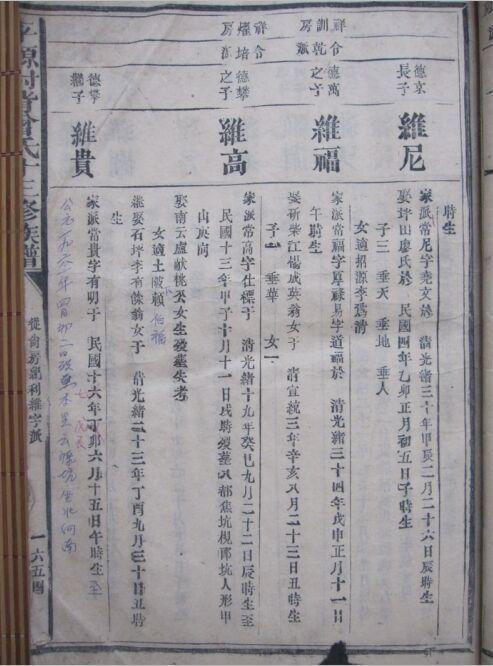 德京
長子
維尼
時生
家派常尼字堯文於 清光緒三十年甲辰二月二十六日辰時生
娶坪田廖氏於 民國四年乙卯正月初五日子時生
子三 垂天 垂地 垂人
女適招源李
祥訓房
令乾
德萬之子
維福
家派常福字厚祿易字道福於 清光緒三十四年戊申正月十一日
午時生
娶研柴江楊成英翁女于 清宣統三年辛亥八月二十三日丑時生
子一 垂華 女一
祥
房
令培
德攀之子
維高
家派常高字仕標于 清光緒十九年癸巳九月二十二日辰時生至
民國十三年甲子十月十一日戌時歿墓八都焦坑梘
坑人形甲
山庚向
娶南云盧獻桃公女生歿墓失考
女適土陂賴
繼娶石坪李有
翁女于 清光緒二十三年丁酉九月三十日丑時
生
德攀
繼子
維貴
家派常貴字有明于 民國十六年丁卯六月十五日午時生至
公元一九六
年四月初二日歿
木
坐北向南
修族譜
維字派
一六五四